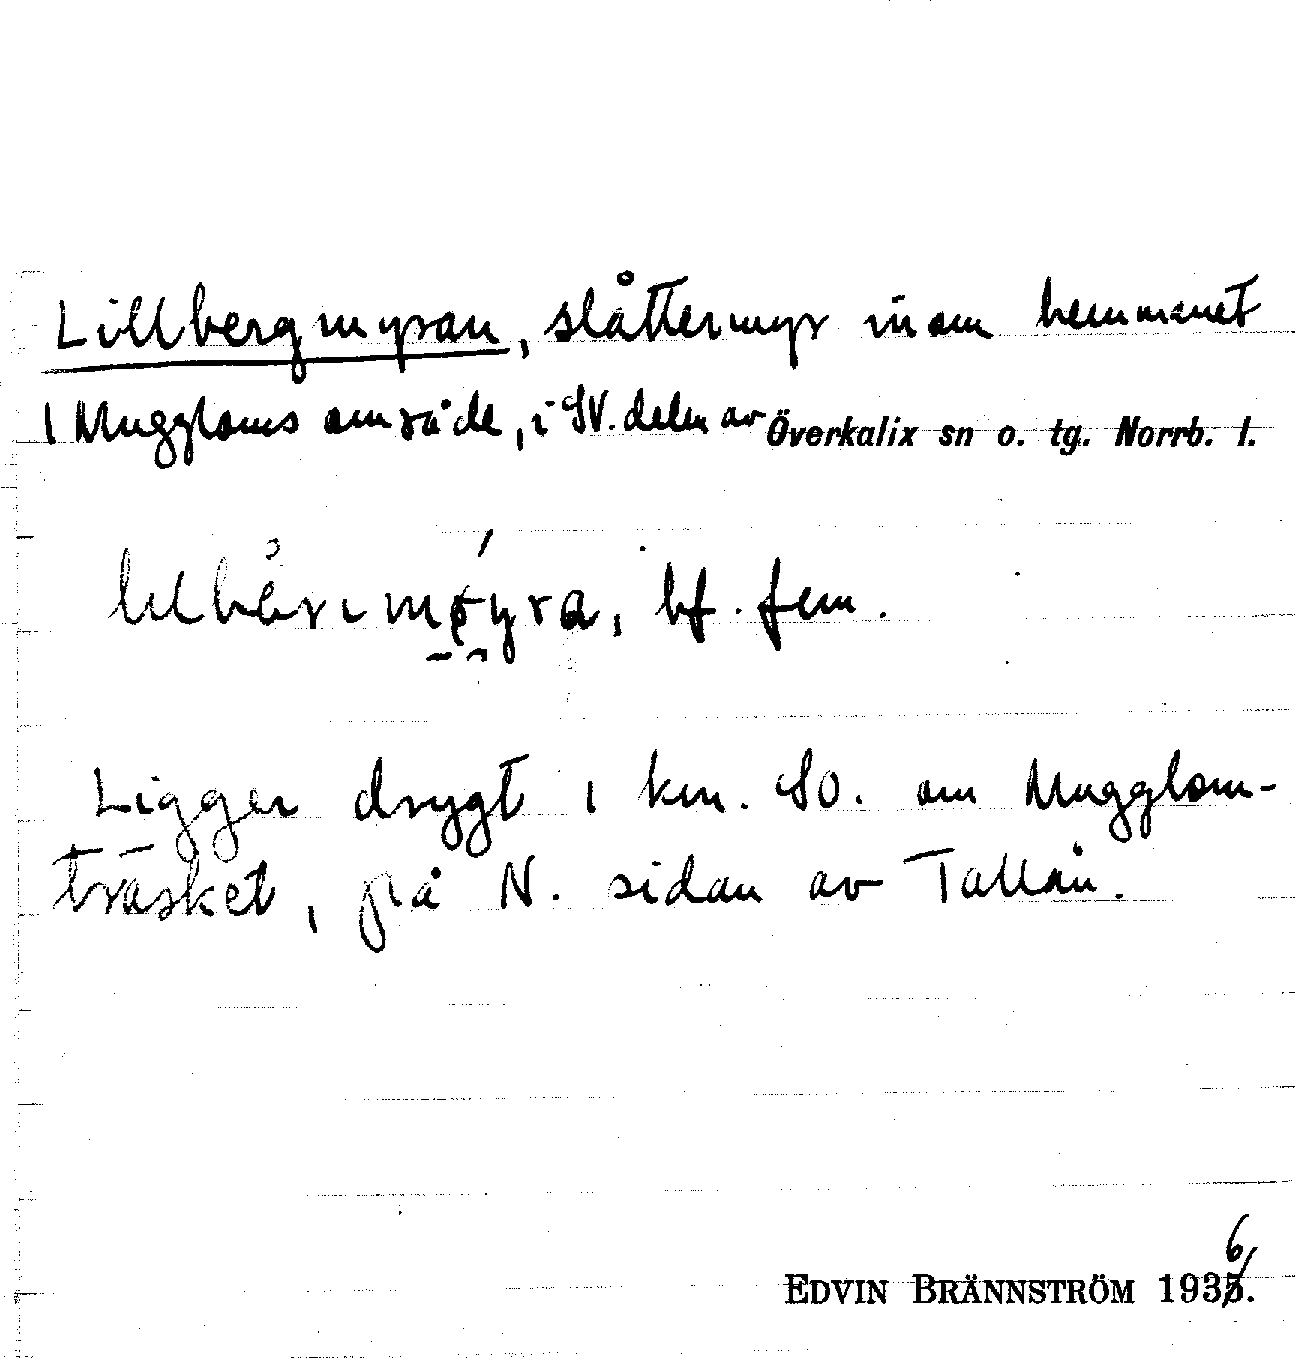 Lillbergmyran, slåttermyr inom hemmanet
1 Muggloms område, i SV. delen av Överkalix sn o. tg. Norrb. l.
bf. fem.
Ligger drygt 1 km. SO. om Mugglom-
träsket, på N. sidan av Tallån.
6
EDVIN BRÄNNSTRÖM 1935.